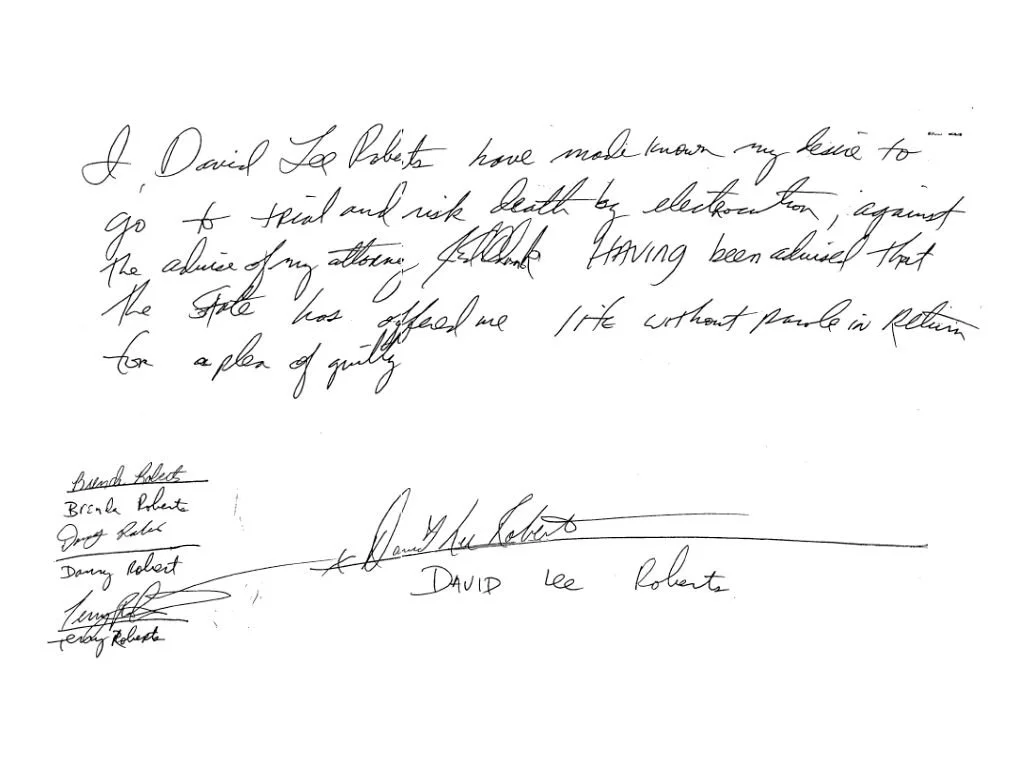 I, David Lee Roberts have made known my desire to
go to trial and risk death by electrocution, against
the advise of my attorney HAVING been advised that
the State has offered me life without parole in Return
for a plea of guilty
Brenda Roberts
Brenda Roberts
Danny Roberts
Danny Robert
Terry
Terry Roberts
David Lee Roberts
DAVID Lee Roberts